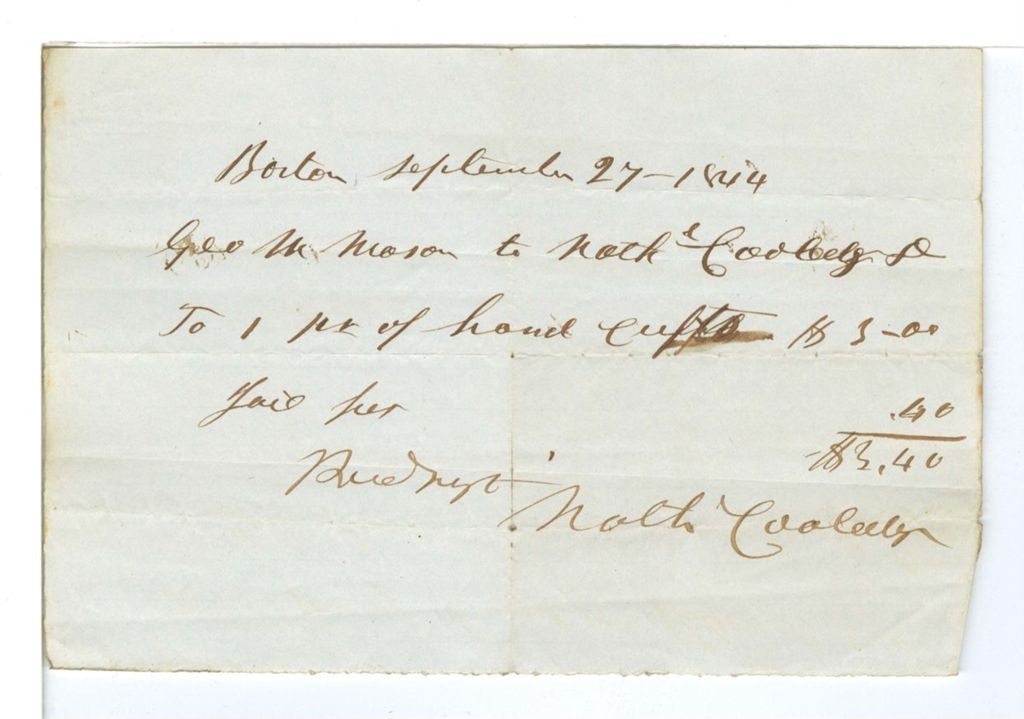 Boston September 27 - 1844
Geo M Mason to Nathl Coolidge Dr
To 1 pr of hand cuffs $3-00
.40
$3.40
Recd payt
Nathl Coolidge